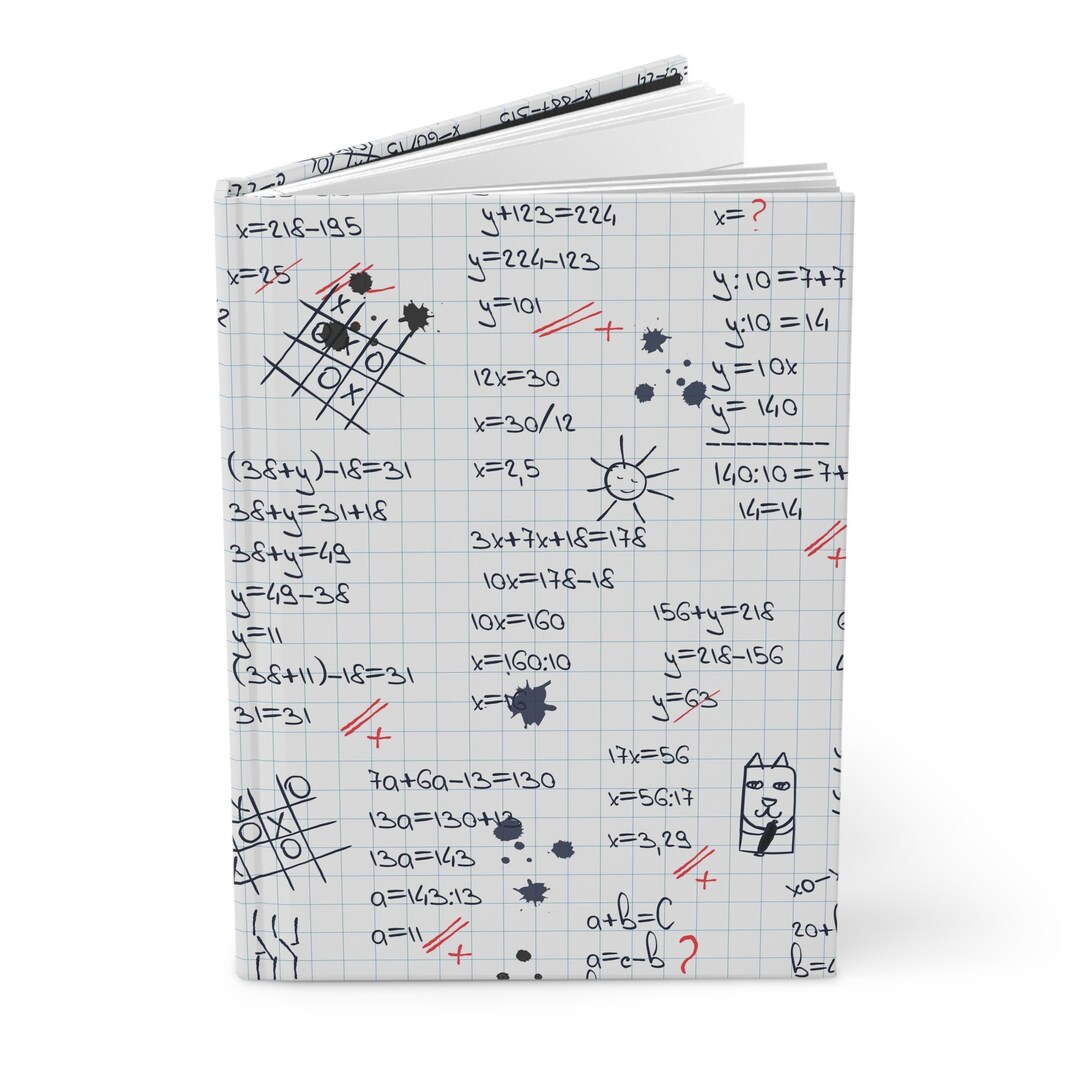 x=218-195
x=25
y+123=224
y=224-123
y=101
12x=30
x=30/12
x=2,5
x=?
y:10=7+7
y:10=14
y=10x
y= 140
140:10=7+
14=14
(38+y)-18=31
38+y=31+18
38+y=49
y=49-38
y=11
(38+11)-18=31
31=31
3x+7x+18=178
10x=178-18
10x=160
x=160:10
x=16
156+y=218
y=218-156
y=63
7a+6a-13=130
13a=130+13
13a=143
a=143:13
a=11
17x=56
x=56:17
x=3,29
a+b=C
a=c-b ?
20+
b=